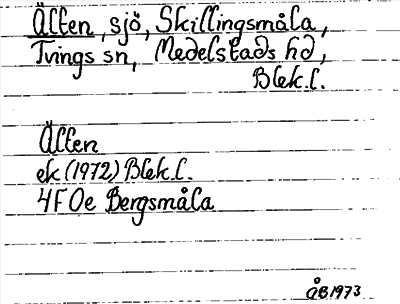 Älten, sjö, Skillingsmåla,
Tvings sn, Medelstads hd,
Blek.l.
Älten
ek (1972) Blek.l.
4F 0e Bergsmåla
ÅB 1973